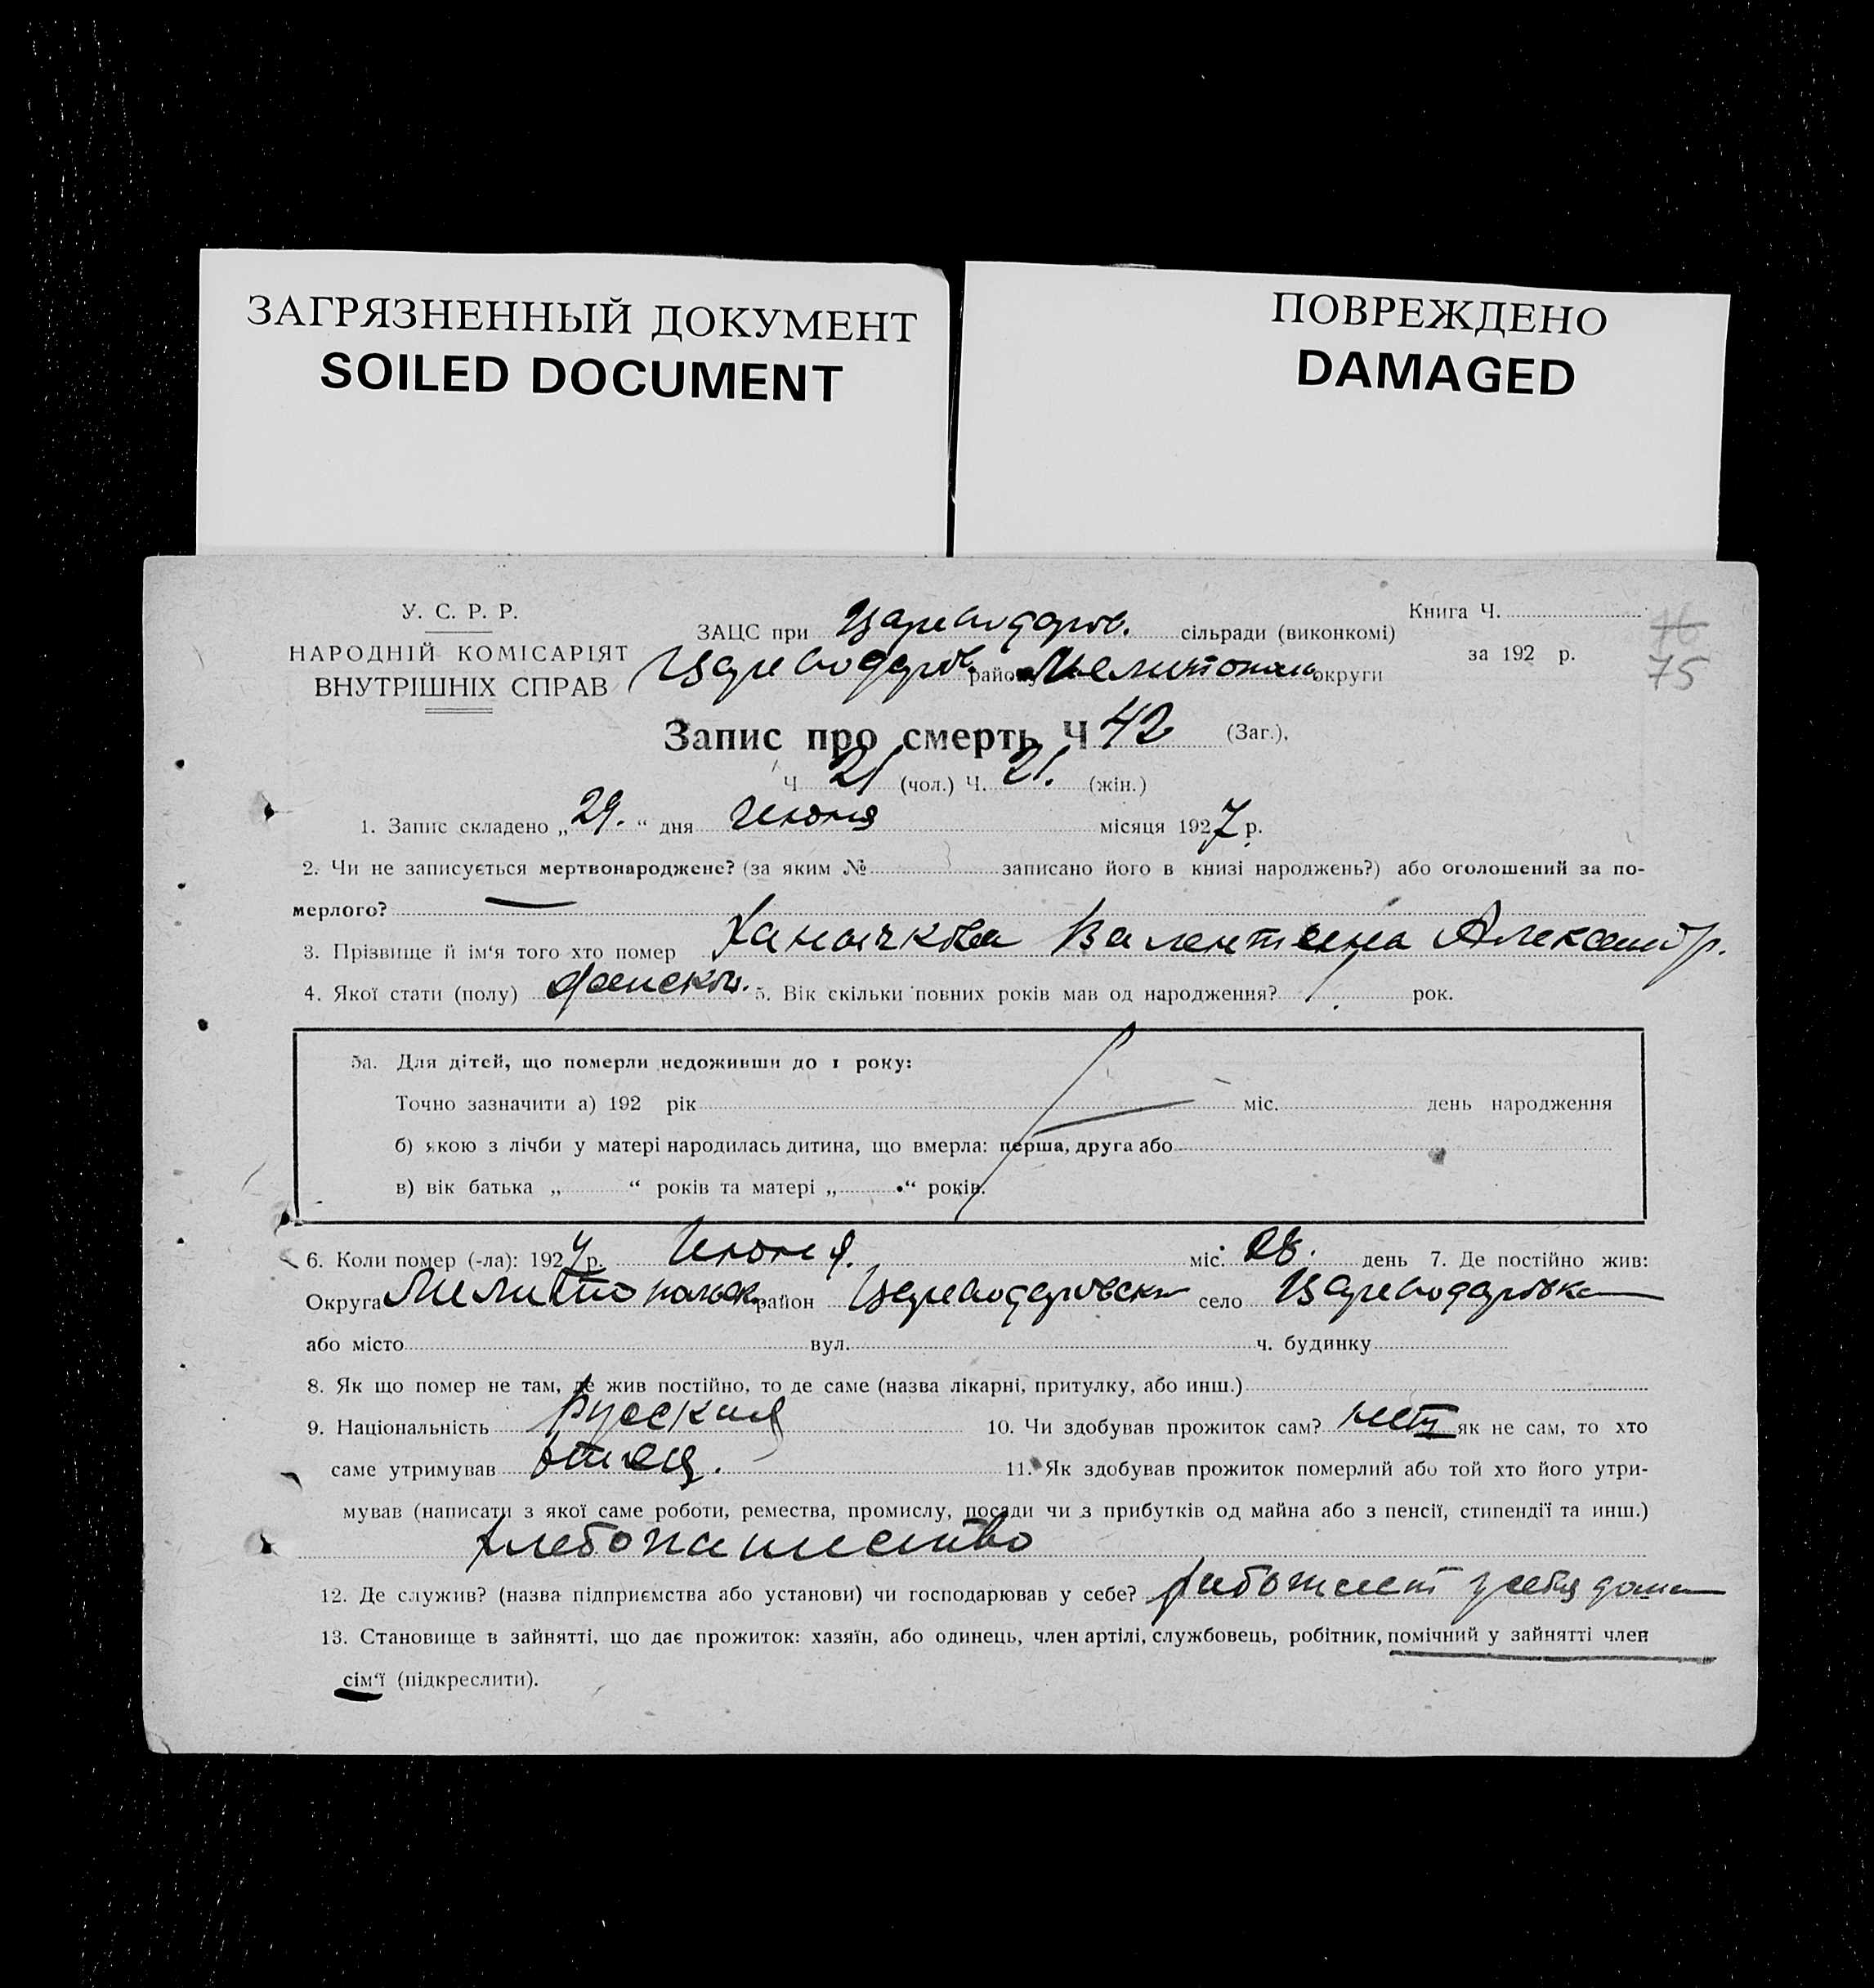 ЗАГРЯЗНЕННЫЙ ДОКУМЕНТ
SOILED DOCUMENT
ПОВРЕЖДЕНО
DAMAGED
У. С. Р. Р.
НАРОДНІЙ КОМІСАРІЯТ
ВНУТРІШНІХ СПРАВ
ЗАЦС при Цареводаров. сільради (виконкомі)
Цареводаров. району Мелитополь округи
Книга Ч.
за 192 р.
76
75
Запис про смерть Ч 42 (Заг.).
Ч 21 (чол.) Ч. 21. (жін.)
1. Запис складено „29.“ дня Июня місяця 1927 р.
2. Чи не записується мертвонароджене? (за яким № записано його в книзі народжень?) або оголошений за по-
мерлого? —
3. Прізвище й ім‘я того хто помер Ханычкова Валентина Александр.
4. Якої стати (полу) женской. 5. Вік скільки повних років мав од народження? 1. рок.
5а. Для дітей, що померли недоживши до 1 року:
Точно зазначити а) 192 рік міс. день народження
б) якою з лічби у матері народилась дитина, що вмерла: перша, друга або
в) вік батька „ “ років та матері „ “ років.
6. Коли помер (-ла): 1927 р. Июня. міс. 28. день 7. Де постійно жив:
Округа Мелитопольск. район Цареводаровски село Цареводаровка
або місто вул. ч. будинку
8. Як що помер не там, де жив постійно, то де саме (назва лікарні, притулку, або инш.)
9. Національність Русская 10. Чи здобував прожиток сам? нет як не сам, то хто
саме утримував отец. 11. Як здобував прожиток померлий або той хто його утри-
мував (написати з якої саме роботи, ремества, промислу, посади чи з прибутків од майна або з пенсії, стипендії та инш.)
хлебопашество
12. Де служив? (назва підприємства або установи) чи господарював у себе? работает у себя дома
13. Становище в зайнятті, що дає прожиток: хазяїн, або одинець, член артілі, службовець, робітник, помічний у зайнятті член
сім‘ї (підкреслити).